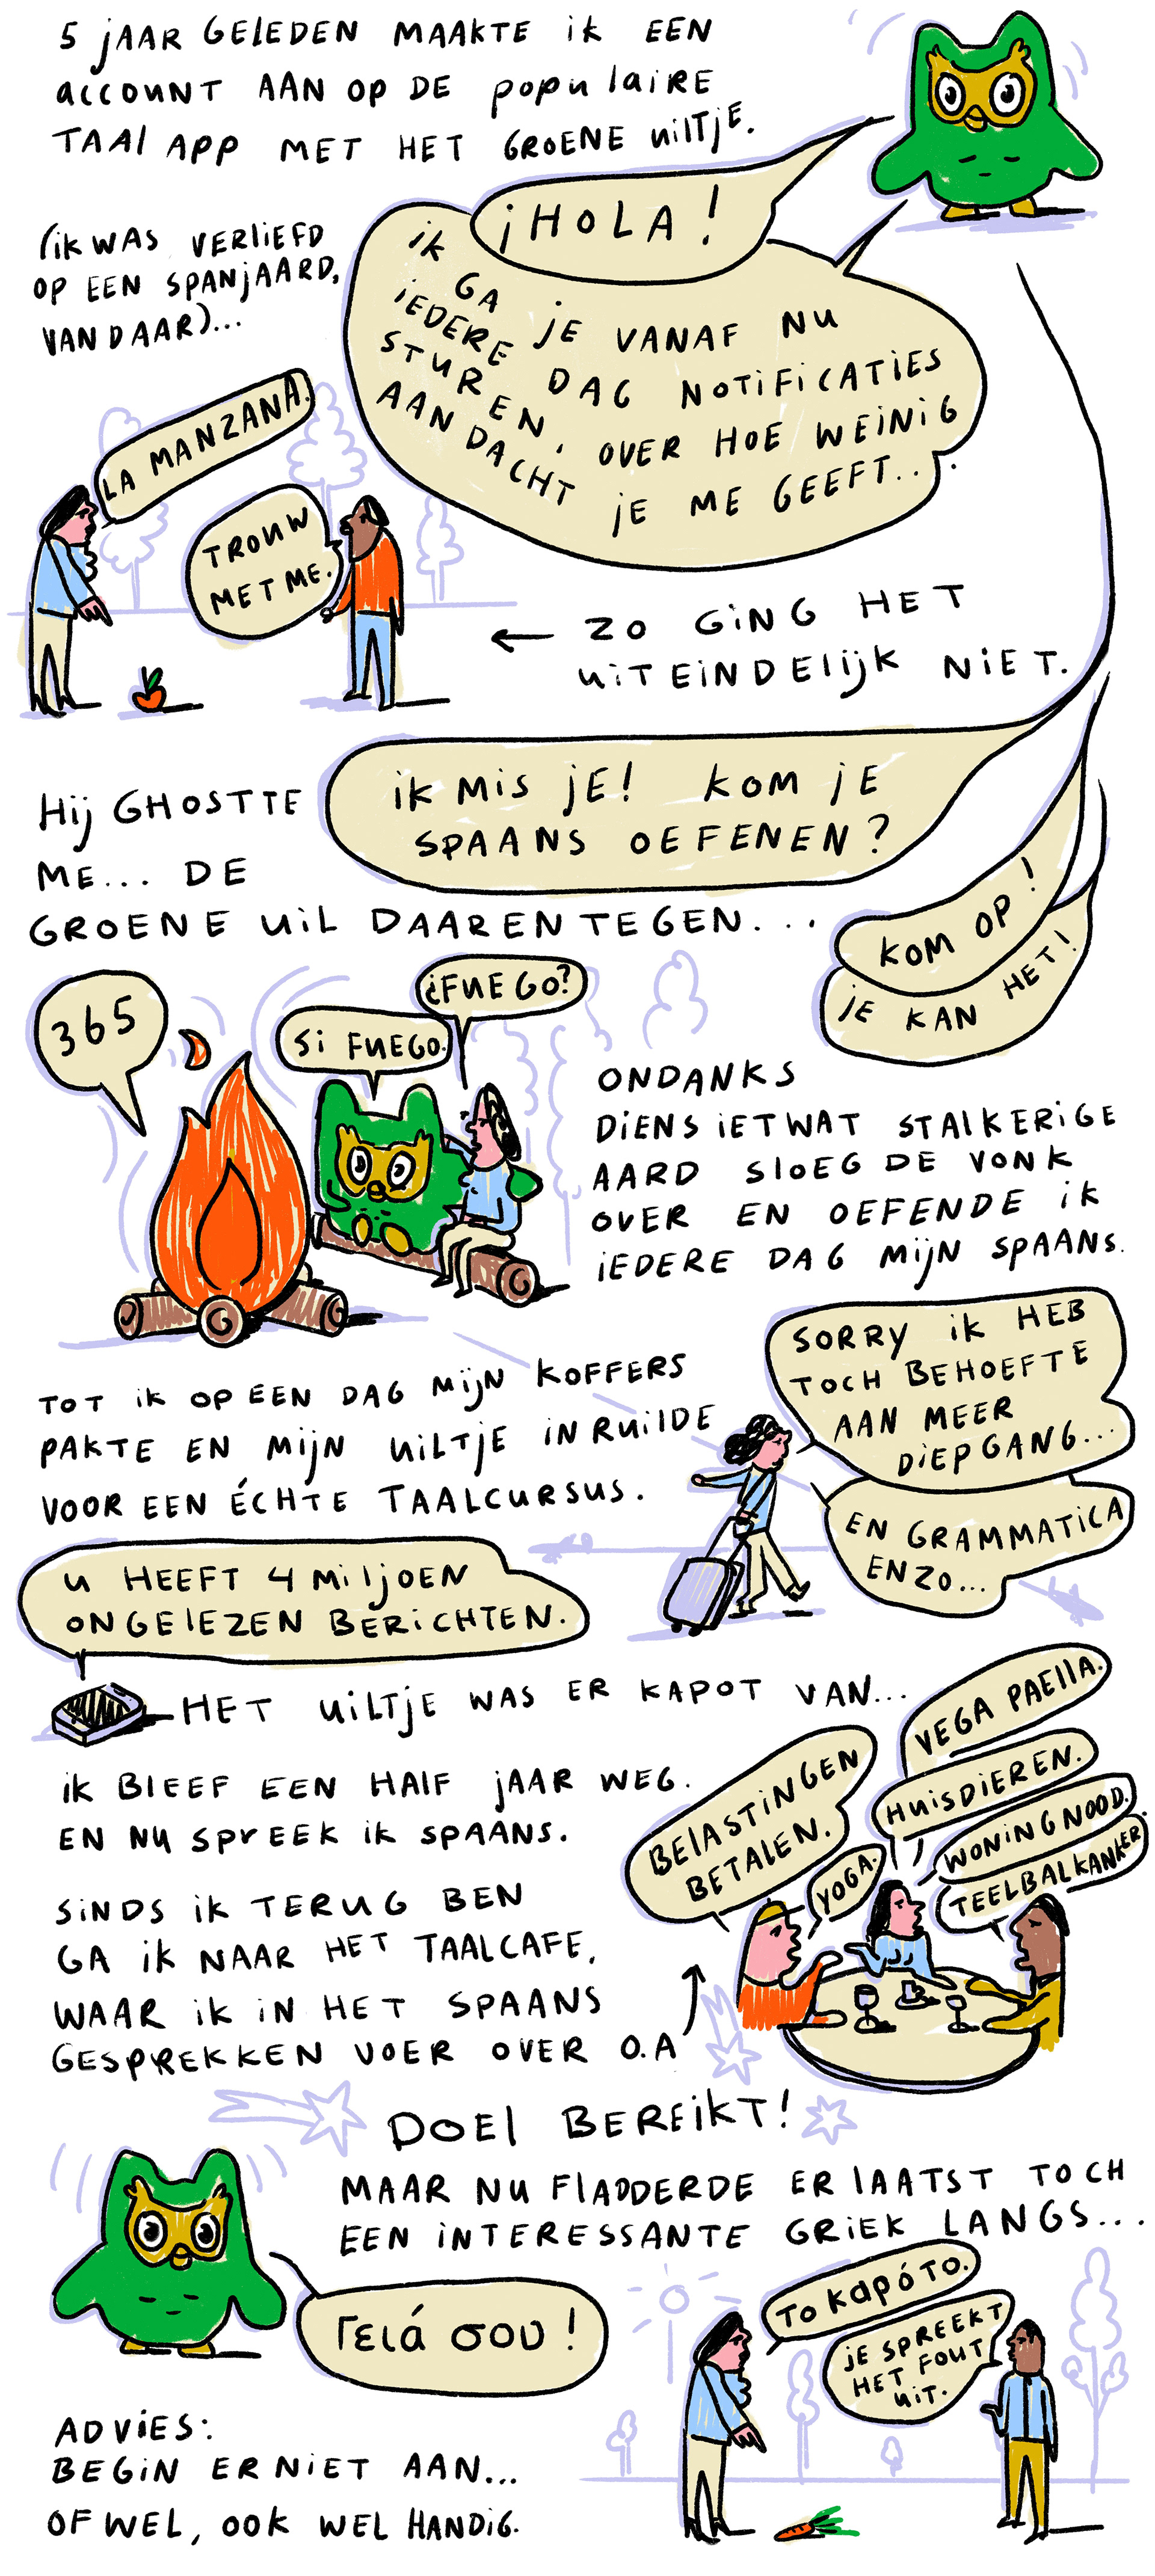 5 jAAR GELEDEN MAAKTE iK EEN
account AAN OP DE populaiRE
TAAl APP MET HET GROENE uilTjE.
¡HOLA!
(iK WAS VERliEFD
OP EEN SPANjAARD,
VANDAAR)...
iK GA jE VANAF NU
iEDERE DAG NOTiFiCATiES
STUREN, OVER HOE WEiNiG
AANDACHT jE ME GEEFT...
LA MANZANA.
TROUW
MET ME.
← ZO GiNG HET
UiTEiNDElijK NiET.
iK MiS jE! KOM jE
SPAANS OEFENEN?
Hij GHOSTTE
ME... DE
GROENE UiL DAARENTEGEN...
KOM OP!
jE KAN HET!
365
Si FUEGO.
¿FUEGO?
ONDANKS
DiENS iETWAT STAlKERiGE
AARD SlOEG DE VONK
OVER EN OEFENDE iK
iEDERE DAG MijN SPAANS.
TOT iK OP EEN DAG MijN KOFFERS
PAKTE EN MijN UilTjE iNRUilDE
VOOR EEN ÉCHTE TAALCURSUS.
SORRY iK HEB
TOCH BEHOEFTE
AAN MEER
DiEPGANG...
EN GRAMMATiCA
ENZO...
U HEEFT 4 MiljOEN
ONGElEZEN BERiCHTEN.
HET UilTjE WAS ER KAPOT VAN...
iK BlEEF EEN HAlF jAAR WEG.
EN NU SPREEK iK SPAANS.
BElASTiNGEN
BETALEN.
YOGA.
VEGA PAEllA.
HUiSDiEREN.
WONiNGNOOD.
TEELBALKANKER.
SiNDS iK TERUG BEN
GA iK NAAR HET TAALCAFE,
WAAR iK iN HET SPAANS
GESPREKKEN VOER OVER O.A
DOEl BEREiKT!
MAAR NU FlADDERDE ER lAATST TOCH
EEN iNTERESSANTE GRiEK LANGS...
Γειά σου!
ΤΟ Καρότο.
jE SPREEKT
HET FOUT
UiT.
ADViES:
BEGiN ER NiET AAN...
OF WEL, OOK WEL HANDiG.